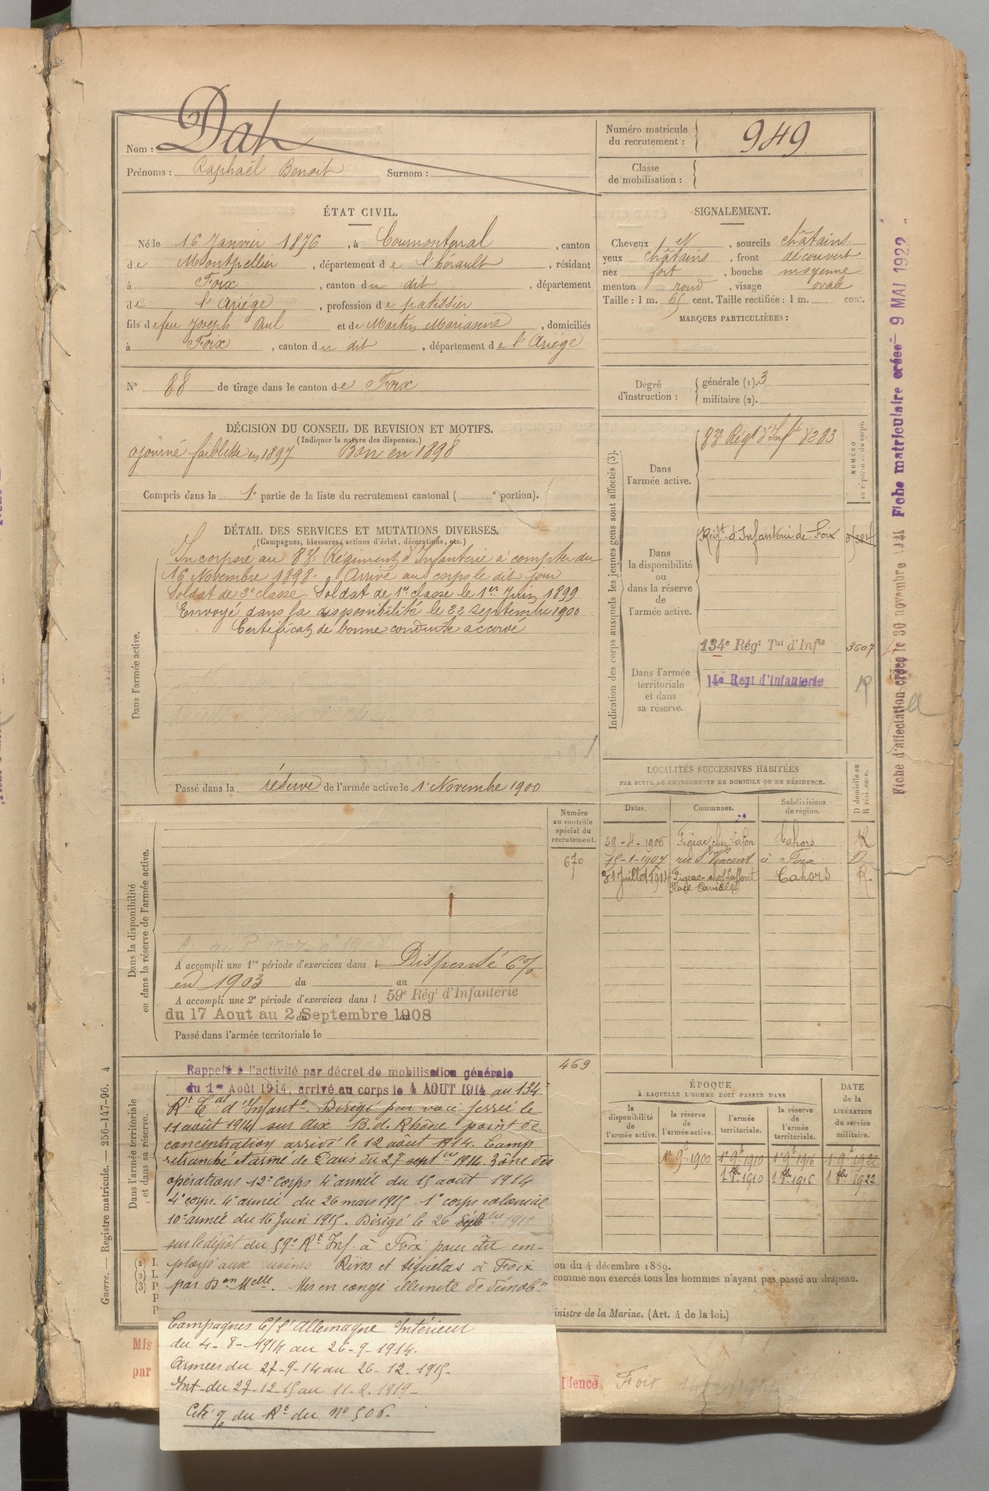 Nom : Dat
Prénoms : Raphaël Benoit Surnom :
Numéro matricule du recrutement : 949
Classe de mobilisation :
ÉTAT CIVIL.
Né le 16 Janvier 1876, à Cournonterral, canton
de Montpellier, département de l'hérault, résidant
à Foix, canton du dit, département
de l'Ariége, profession de patissier
fils de feu Joseph Paul et de Martin Marianne, domiciliés
à Foix, canton du dit, département de l'Ariége
N° 88 de tirage dans le canton de Foix
SIGNALEMENT.
Cheveux et, sourcils châtains
yeux châtains, front découvert
nez fort, bouche moyenne
menton rond, visage ovale
Taille : 1 m. 65 cent. Taille rectifiée : 1 m. cent.
MARQUES PARTICULIÈRES :
Degré d'instruction : générale (1). 3
militaire (2).
DÉCISION DU CONSEIL DE REVISION ET MOTIFS.
(Indiquer la nature des dispenses.)
ajourné faiblesse en 1897 Bon en 1898
Compris dans la 1e partie de la liste du recrutement cantonal ( portion).
DÉTAIL DES SERVICES ET MUTATIONS DIVERSES.
(Campagnes, blessures, actions d'éclat, décorations, etc.)
Dans l'armée active.
Incorporé au 83e Régiment d'Infanterie à compter du
16 Novembre 1898. Arrivé au corps le dit jour
Soldat de 2e classe. Soldat de 1re classe le 1er Juin 1899
Envoyé dans la disponibilité le 22 septembre 1900
Certificat de bonne conduite accordé
Passé dans la réserve de l'armée active le 1er Novembre 1900
Indication des corps auxquels les jeunes gens sont affectés (3).
NUMÉRO
Dans l'armée active.
83e Régt d'Infie 8203
Dans la disponibilité ou dans la réserve de l'armée active.
Régt d'Infanterie de Foix
Dans l'armée territoriale et dans sa réserve.
134e Régt Tal d'Infie 3607
14e Regt d'Infanterie R
LOCALITÉS SUCCESSIVES HABITÉES
PAR SUITE DE CHANGEMENTS DE DOMICILE OU DE RÉSIDENCE.
Dates. Communes. Subdivisions de région. D domicile ou R résidence.
1906 Figeac Cahors R
15-1-1907 rue St Vincent à Foix D
31 Juillet Figeac Cahors R.
Place
Numéro au contrôle spécial du recrutement.
670
Dans la disponibilité ou dans la réserve de l'armée active.
A accompli une 1re période d'exercices dans l Dispensé 6%
en 1903 du au
A accompli une 2e période d'exercices dans l 59e Régt d'Infanterie
du 17 Aout au 2 Septembre 1908
Passé dans l'armée territoriale le
469
Dans l'armée territoriale et dans sa réserve.
Rappelé à l'activité par décret de mobilisation générale
du 1er Août 1914, arrivé au corps le 4 AOUT 1914 au 134
Rt Tal d'Infante. Dirigé par voie ferrée le
11 août 1914 sur Aix B. du Rhône point de
concentration arrivé le 12 août 1914. Camp
retranché et armé de Paris du 27 septbre 1914. Zône des
opérations 12e Corps 4e armée du 15 août 1914
4e corps. 4e armée du 26 mars 1915 1e corps colonial
10e armée du 16 Juin 1915. Dirigé le 26
sur le dépôt du 59e Rt Inf. à Foix pour être em-
ployé aux usines à Foix
par Don Melle. Mis en congé illimité de
Campagnes C/ l'Allemagne Intérieur
du 4-8-1914 au 26-9-1914.
Armées du 27-9-14 au 26-12-1915.
Int. du 27-12-15 au
Cité du Rt du n° 506.
ÉPOQUE
À LAQUELLE L'HOMME DOIT PASSER DANS
la disponibilité de l'armée active. la réserve de l'armée active. l'armée territoriale. la réserve de l'armée territoriale. DATE de la LIBÉRATION du service militaire.
1er 9e 1900 1er 9e 1910 1er 9e 1916 1er 9e 1922
on du 4 décembre 1889.
comme non exercés tous les hommes n'ayant pas passé au drapeau.
inistre de la Marine. (Art. 4 de la loi.)
Guerre. — Registre matricule. — 256-147-96. 4
Mis
par
idence, Foix
Fiche d'affectation créée le 30 novembre Fiche matriculaire créée 9 MAI 1922